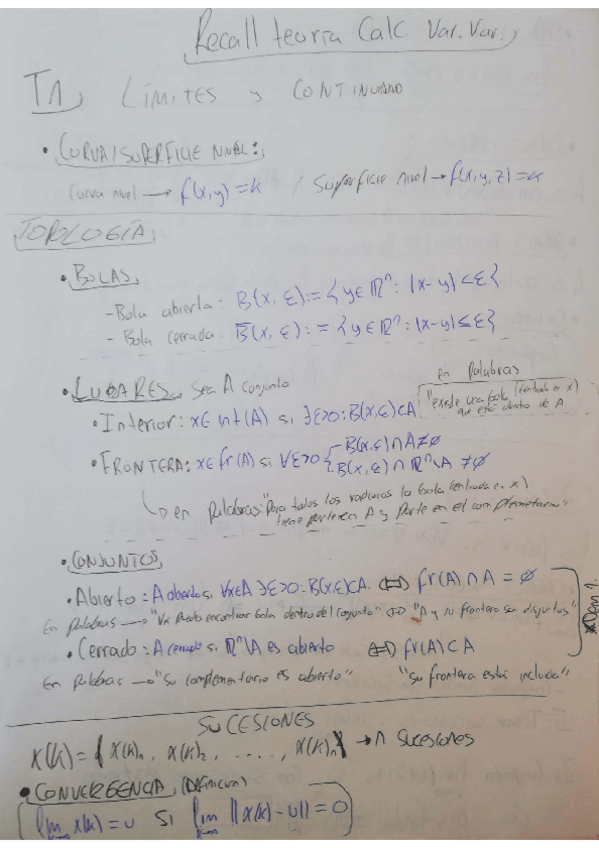 Recall teoría Calc. Var. Var.
T1 LÍMITES y CONTINUIDAD
• CURVA/SUPERFICIE NIVEL:
Curva nivel → f(x,y)=k / Superficie nivel → f(x,y,z)=k
TOPOLOGÍA
• BOLAS
- Bola abierta: B(x,ε):={y∈ℝⁿ: |x-y|<ε}
- Bola cerrada: B̄(x,ε):={y∈ℝⁿ: |x-y|≤ε}
• LUGARES, sea A conjunto
en palabras
• Interior: x∈int(A) si ∃ε>0: B(x,ε)⊂A "existe una bola (centrada en x) que está dentro de A
• FRONTERA: x∈fr(A) si ∀ε>0 { - B(x,ε)∩A≠∅
B(x,ε)∩ℝⁿ\A ≠∅
↳ en palabras: "Para todos los radios la bola (centrada en x)
tiene parte en A y parte en el complementario"
• CONJUNTOS
• Abierto: A abierto si ∀x∈A ∃ε>0: B(x,ε)⊂A ⟺ fr(A)∩A=∅
En palabras → "Vx Puedo encontrar bola dentro del conjunto" ⟺ "A y su frontera son disjuntos"
*Dem 1.
• Cerrado: A cerrado si ℝⁿ\A es abierto ⟺ fr(A)⊂A
En palabras → "Su complementario es abierto" "su frontera está incluida"
SUCESIONES
X(k)={X(k)₁, X(k)₂, ....., X(k)ₙ} → n sucesiones
• CONVERGENCIA (Definición)
lim x(k)=u si lim ||x(k)-u||=0